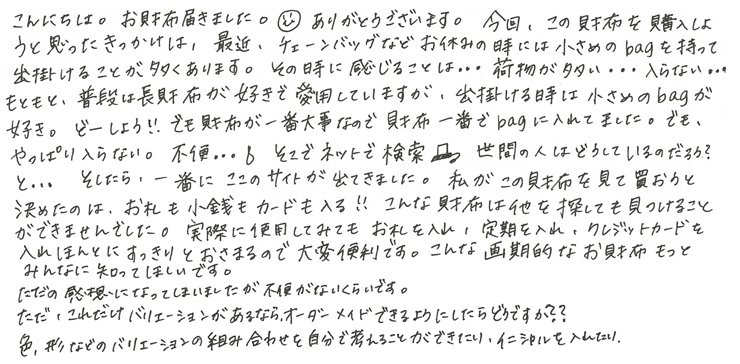 こんにちは。お財布届きました。☺ ありがとうございます。今回、この財布を購入しよ
うと思ったきっかけは、最近、チェーンバッグなどお休みの時には小さめのbagを持って
出掛けることが多くあります。その時に感じることは…荷物が多い…入らない…
もともと、普段は長財布が好きで愛用していますが、出掛ける時は小さめのbagが
好き。どーしよう!! でも財布が一番大事なので財布一番でbagに入れてました。でも、
やっぱり入らない。不便…! そこでネットで検索 世間の人はどうしているのだろう?
と… そしたら、一番にここのサイトが出てきました。私がこの財布を見て買おうと
決めたのは、お札も小銭もカードも入る!! こんな財布は他を探しても見つけること
ができませんでした。実際に使用してみてもお札を入れ、定期を入れ、クレジットカードを
入れほんとにすっきりとおさまるので大変便利です。こんな画期的なお財布もっと
みんなに知ってほしいです。
ただの感想になってしまいましたが不便がないくらいです。
ただ、これだけバリエーションがあるなら、オーダーメイドできるようにしたらどうですか??
色、形などのバリエーションの組み合わせを自分で考えることができたり、イニシャルを入れたり.